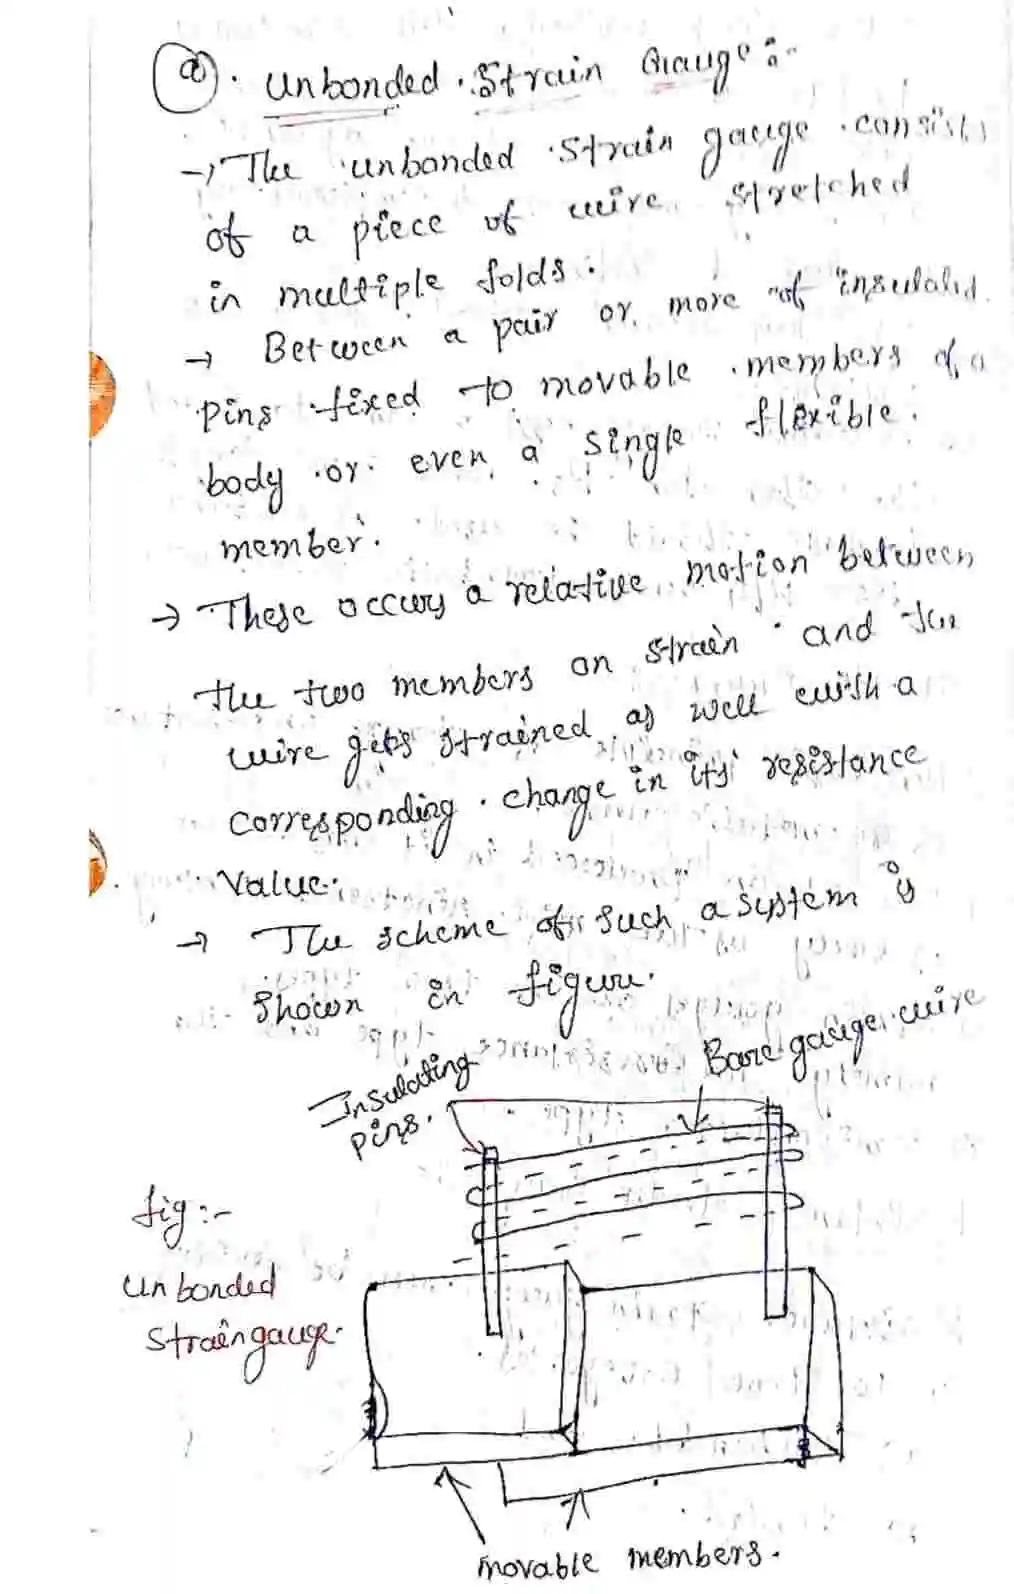 a. Unbonded Strain Gauge:-
→ The unbonded strain gauge consists
of a piece of wire stretched
in multiple folds.
→ Between a pair or more of insulated
pins fixed to movable members of a
body or even a single flexible
member.
→ These occurs a relative motion between
the two members on strain and the
wire gets strained as well with a
corresponding change in its resistance
value.
→ The scheme of such a system is
shown in figure.
Bare gauge wire
Insulating
pins.
fig:-
unbonded
strain gauge.
movable members.